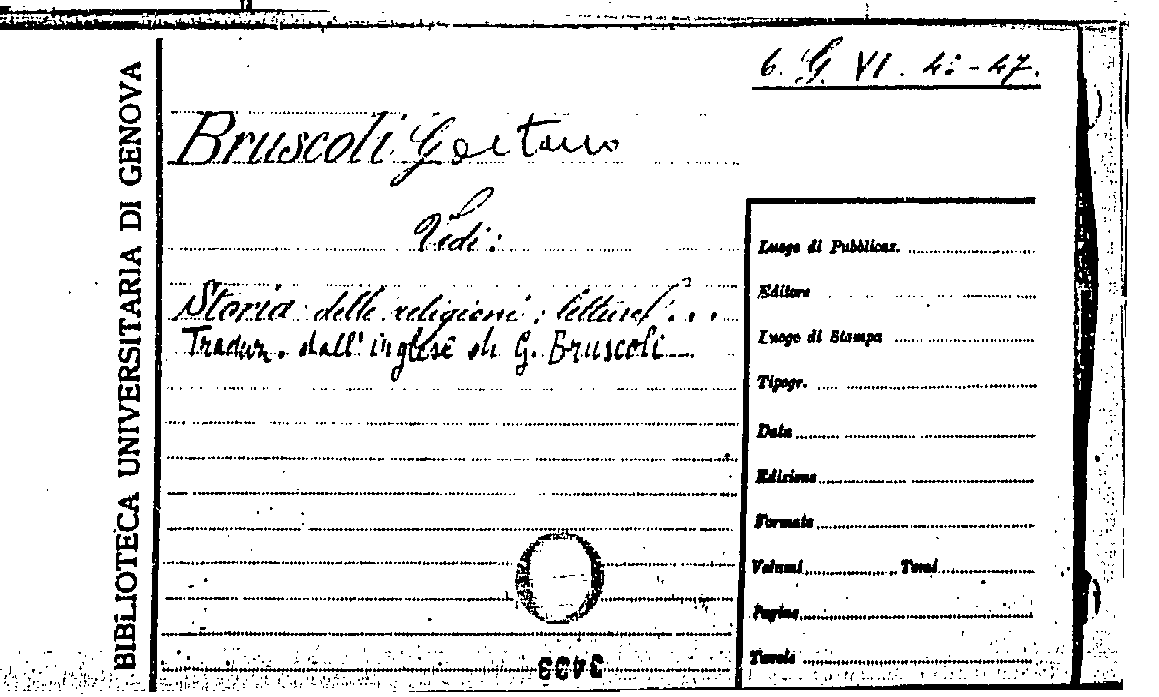 BIBLIOTECA UNIVERSITARIA DI GENOVA
6. G. VI. 42-47.
Bruscoli Gaetano
Vedi:
Storia delle religioni: letture...
Traduz. dall'inglese di G. Bruscoli
Luogo di Pubblicaz.
Editore
Luogo di Stampa
Tipogr.
Data
Edizione
Formato
Volumi Tomi
Pagine
Tavole
3433